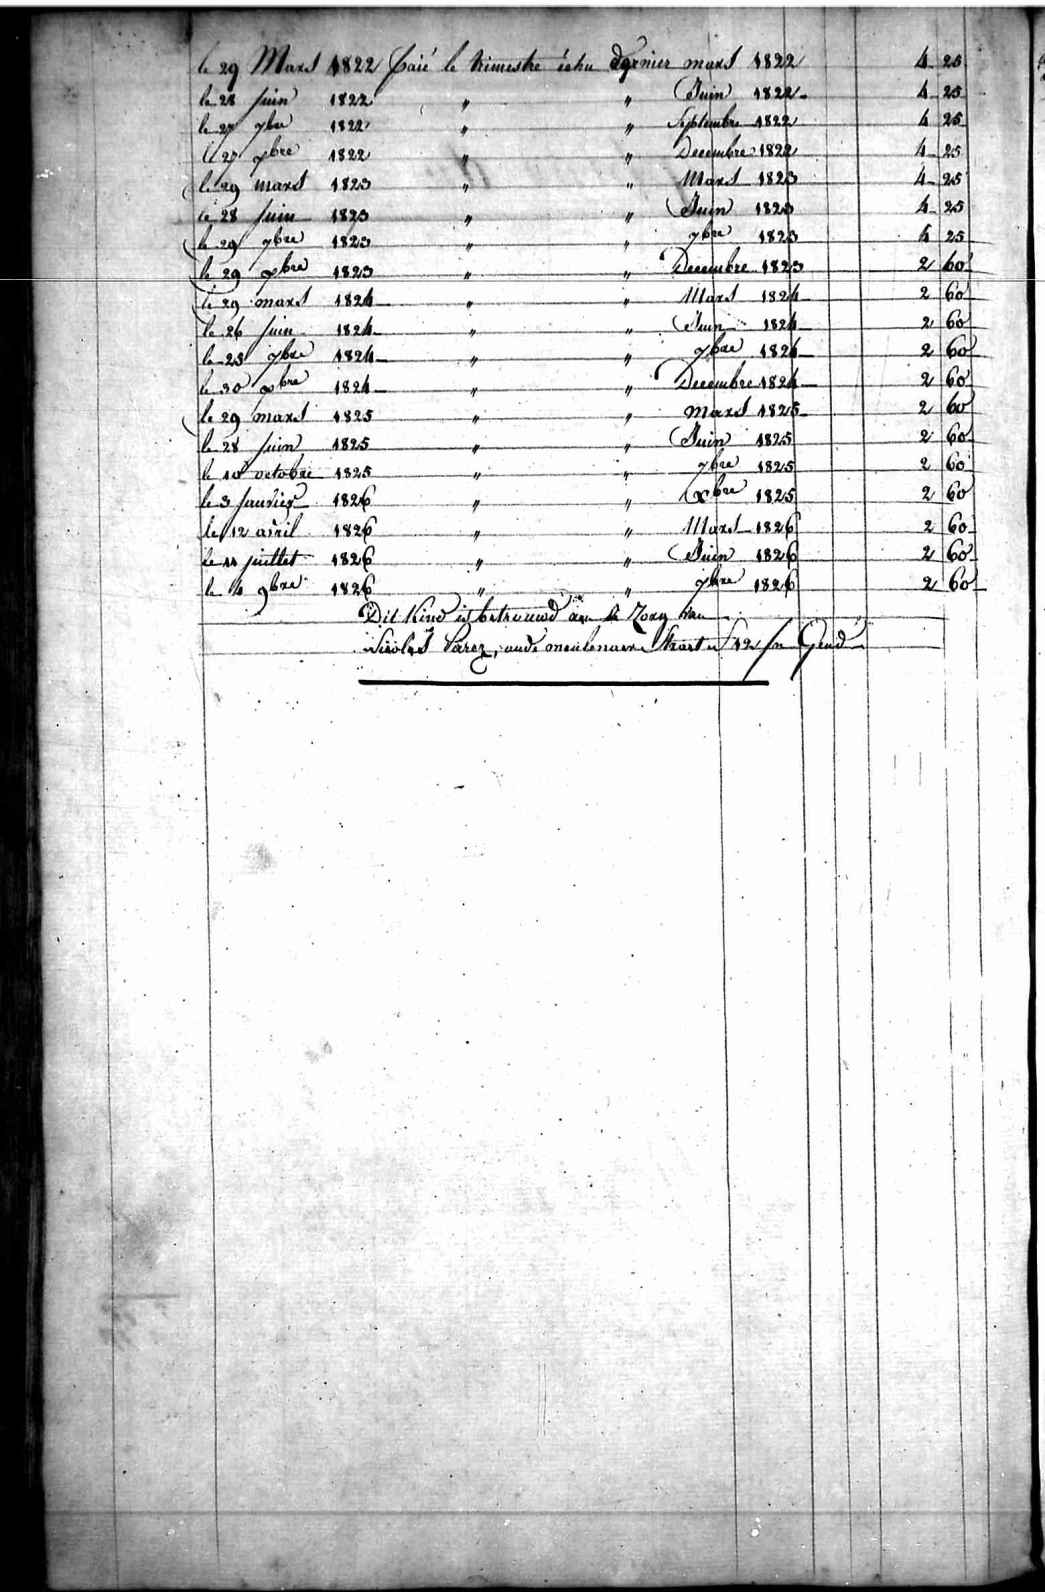 le 29 Mars 1822 Paié le trimestre échu dernier mars 1822 4 25
le 28 Juin 1822 " " Juin 1822 4 25
le 27 7bre 1822 " " Septembre 1822 4 25
le 27 xbre 1822 " " Decembre 1822 4 25
le 29 mars 1823 " " Mars 1823 4 25
le 28 Juin 1823 " " Juin 1823 4 25
le 29 7bre 1823 " " 7bre 1823 4 25
le 29 xbre 1823 " " Decembre 1823 2 60
le 29 mars 1824 " " Mars 1824 2 60
le 26 Juin 1824 " " Juin 1824 2 60
le 25 7bre 1824 " " 7bre 1824 2 60
le 30 xbre 1824 " " Decembre 1824 2 60
le 29 mars 1825 " " mars 1825 2 60
le 28 Juin 1825 " " Juin 1825 2 60
le 10 octobre 1825 " " 7bre 1825 2 60
le 3 Janvier 1826 " " xbre 1825 2 60
le 12 avril 1826 " " Mars 1826 2 60
le 11 juillet 1826 " " Juin 1826 2 60
le 4 9bre 1826 " " 7bre 1826 2 60
Dit Kind is betrouwd aen de Zorg van
Nicolas Parez, oude meulenaere Straet n 12 in Gend